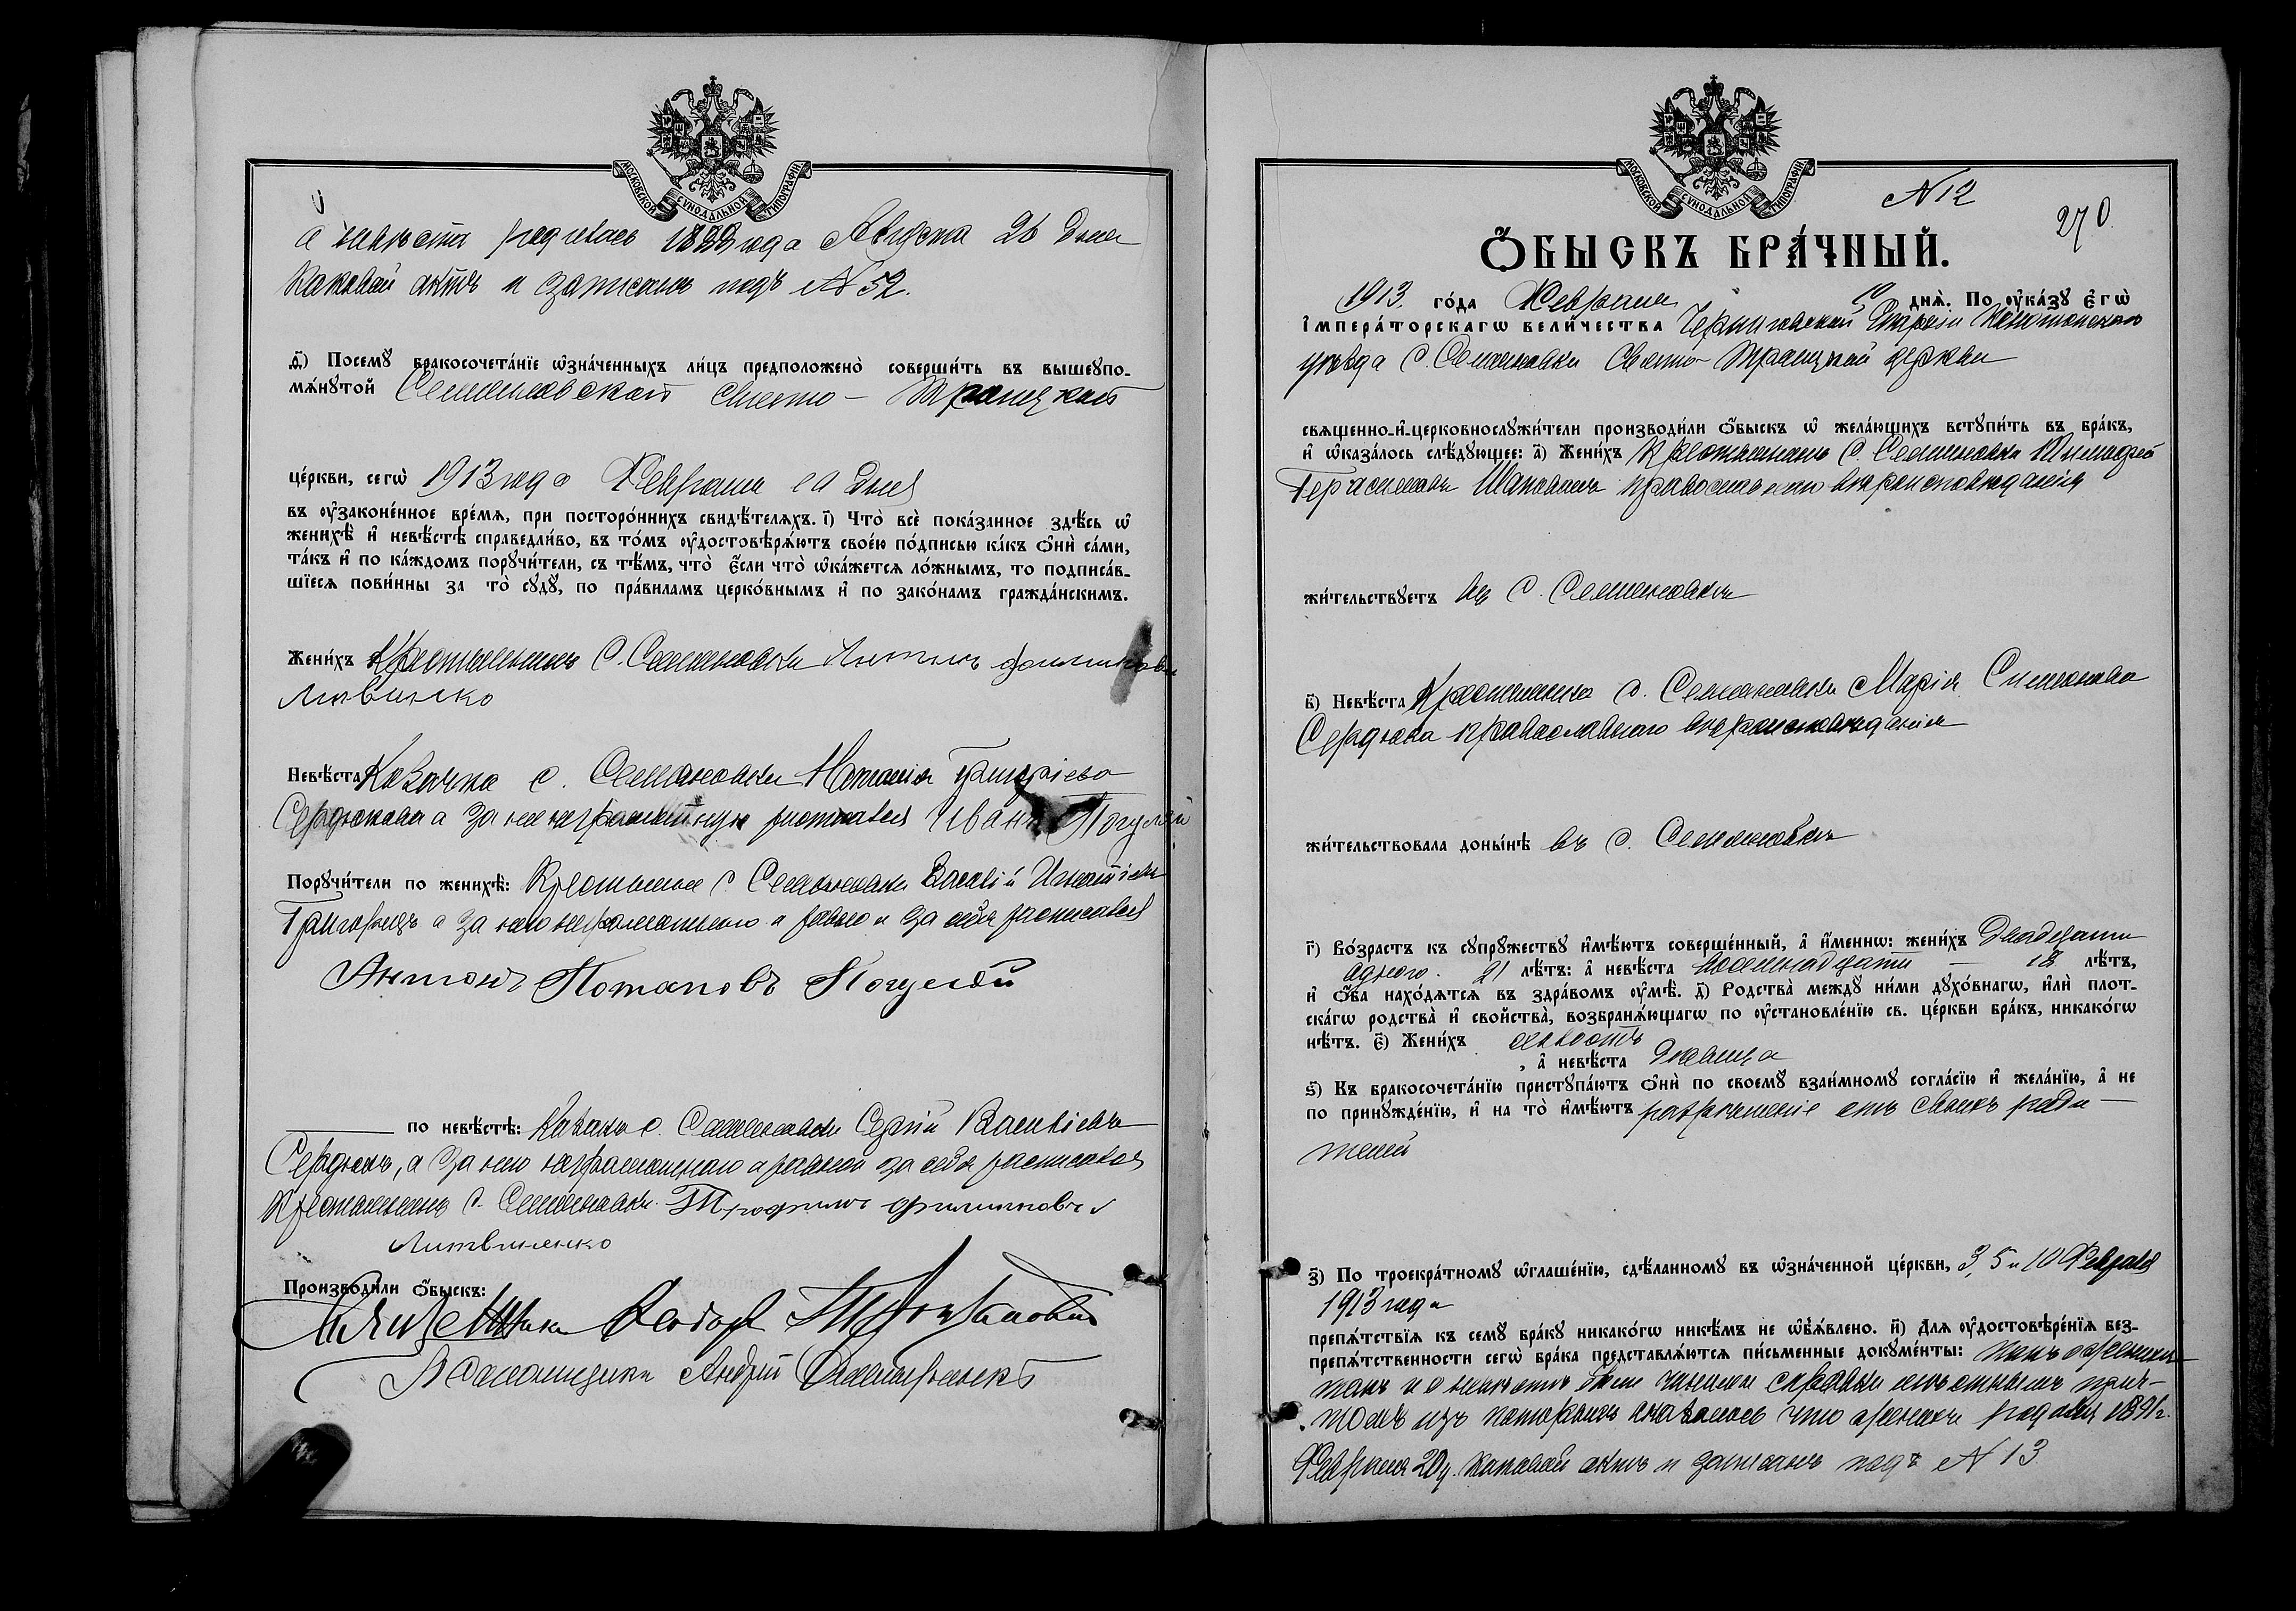 МОСКОВСКОЙ СѴНОДАЛЬНОЙ ТИПОГРАФІИ
а невѣста родилась года Августа 26 дня
каковой актъ и записанъ подъ № 52.
д҃) Посемꙋ бракосочета́нїе ѡзна́ченныхъ ли́цъ предположено̀ соверши́ть въ вышеꙋпо-
мѧ́нꙋтой Семеновской Свято-Троицкой
це́ркви, сегѡ̀ 1913 года Февраля 10 дня
въ ᲂу҆зако́ненное вре́мѧ, при посторо́ннихъ свидѣ́телѧхъ. і҃) Что̀ всѐ пока́занное здѣ́сь ѡ҆
женихѣ̀ и҆ невѣ́стѣ справедли́во, въ то́мъ ᲂу҆достовѣрѧ́ютъ свое́ю по́дписью ка́къ ѻ҆нѝ са́ми,
та́къ и҆ по ка́ждомъ порꙋчи́тели, съ тѣ́мъ, что̀ є҆́сли что̀ ѡ҆ка́жетсѧ ло́жнымъ, то подписа́в-
шїесѧ пови́нны за то̀ сꙋдꙋ̀, по пра́виламъ церко́внымъ и҆ по зако́намъ гражда́нскимъ.
Жени́хъ Крестьянинъ с. Семеновки Антонъ Филимоновъ
Литвиненко
Невѣ́ста Козачка с. Семеновки Наталія Григоріева
Сердюкова а за нее неграмотную росписался Иванъ Погуляй
Порꙋчи́тели по женихѣ̀: Крестьяне с. Семеновки Василій Игнатіевъ
Григорецъ а за него неграмотнаго и равно и за себя росписался
Антонъ Потаповъ Погуляй
по невѣ́стѣ: Козакъ с. Семеновки Сергій Василіевъ
Сердюкъ, а за него неграмотнаго и равно и за себя росписался
Крестьянинъ с. Семеновки Трофимъ Филимоновъ
Литвиненко
Производи́ли ѻ҆́быскъ:
Священникъ Ѳеодоръ
Псаломщикъ Андрей
МОСКОВСКОЙ СѴНОДАЛЬНОЙ ТИПОГРАФІИ
№ 12
270
Ѻ҆́БЫСКЪ БРА́ЧНЫЙ.
1913 го́да Февраля 10 днѧ̀. По ᲂу҆ка́зꙋ є҆гѡ̀
і҆мпера́торскагѡ вели́чества Черниговской Епархіи Конотопскаго
уѣзда с. Семеновки Свято-Троицкой церкви
свѧщенно-и҆-церковнослꙋжи́тели производи́ли ѻ҆́быскъ ѡ҆ жела́ющихъ встꙋпи́ть въ бра́къ,
и҆ ѡ҆каза́лось слѣ́дꙋющее: а҃) Жени́хъ Крестьянинъ с. Семеновки Тимофей
Герасимовъ православнаго вѣроисповѣданія
жи́тельствꙋетъ въ с. Семеновки
в҃) Невѣ́ста Крестьянка с. Семеновки Марія Симонова
Сердюкова православнаго вѣроисповѣданія
жи́тельствовала доны́нѣ въ с. Семеновки
г҃) Во́зрастъ къ сꙋпрꙋ́жествꙋ и҆мѣ́ютъ соверше́нный, а҆ и҆́меннѡ: жени́хъ двадцати
одного 21 лѣ́тъ: а҆ невѣ́ста восемнадцати — 18 лѣ́тъ,
и҆ ѻ҆́ба нахо́дѧтсѧ въ здра́вомъ ᲂу҆мѣ̀. д҃) Родства̀ междꙋ̀ ни́ми дꙋхо́внагѡ, и҆лѝ плот-
ска́гѡ родства̀ и҆ свойства̀, возбранѧ́ющагѡ по ᲂу҆становле́нїю св. це́ркви бра́къ, никако́гѡ
нѣ́тъ. є҃) Жени́хъ холостъ
, а҆ невѣ́ста дѣвица
ѕ҃) Къ бракосочета́нїю пристꙋпа́ютъ ѻ҆нѝ по своемꙋ̀ взаи́мномꙋ согла́сїю и҆ жела́нїю, а҆ не
по принꙋжде́нїю, и҆ на то̀ и҆мѣ́ютъ разрѣшеніе отъ своихъ роди-
телей
з҃) По троекра́тномꙋ ѡ҆глаше́нїю, сдѣ́ланномꙋ въ ѡ҆зна́ченной це́ркви, 3, 5 и 10 Февраля
1913 года
препѧ́тствїѧ къ семꙋ̀ бра́кꙋ никако́гѡ никѣ́мъ не ѡ҆б̾ѧ́влено. и҃) Длѧ ᲂу҆достовѣре́нїѧ без-
препѧ́тственности сегѡ̀ бра́ка представлѧ́ютсѧ пи́сьменные докꙋме́нты: какъ о женихѣ
такъ и о невѣстѣ были чинены справки мѣстнымъ прич-
томъ изъ которыхъ оказалось что женихъ родился 1891 г.
Февраля 20 д. каковой актъ и записанъ подъ № 13